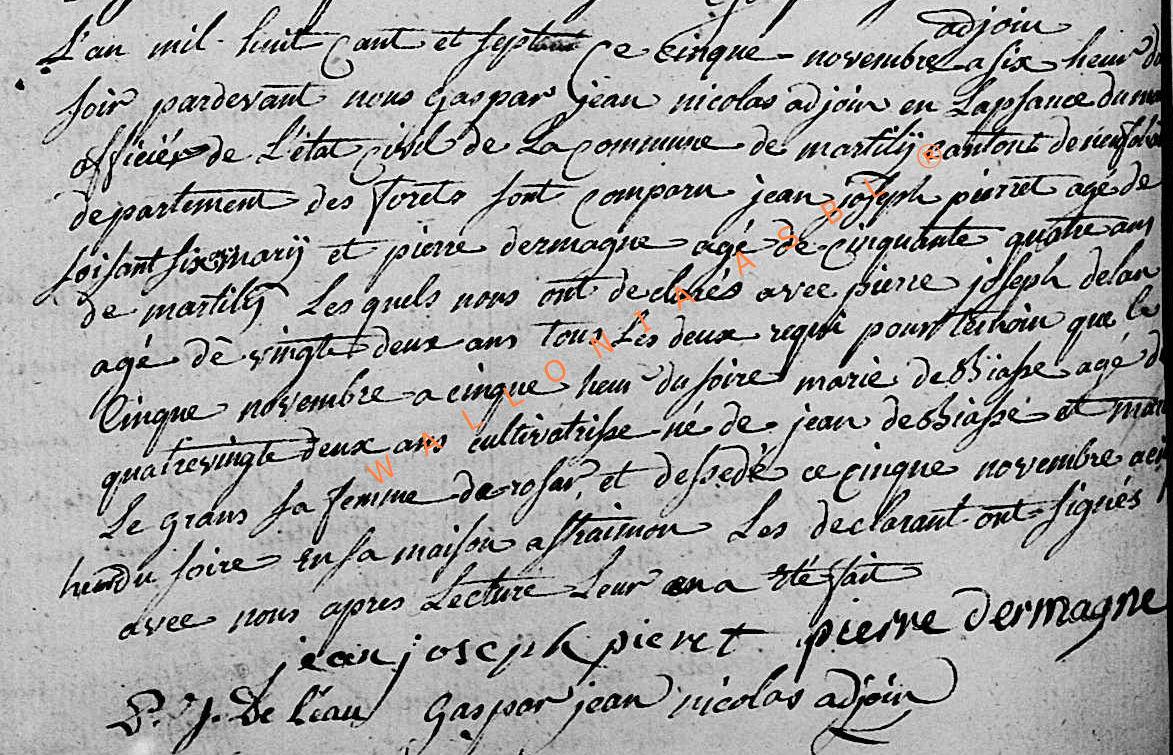 adjoin
L'an mil huit cant et sept ce cinque novembre a six heur du
soir pardevant nous Gaspar jean nicolas adjoin en Lapsance du
officiér de L'état Civil de La Commune de martilÿ cantont de
departement des forets sont comparu jean joseph pierret agé de
soisant six marÿ et pierre dermagne agé de cinquante quatre ans
de martilÿ Les quels nous ont declarés avec pierre joseph
agé de vingte deux ans tous Les deux requi pour temoin que le
Cinque novembre a cinque heur du soire marie deshiasse agé
quatrevingte deux ans cultivatrisse né de jean deshiassé et
Le grans sa femme de rosar et dessedé ce cinque novembre
heur du soire en sa maison a straimon Les declarant ont signés
avec nous apres Lecture Leur en a eté fait
jean joseph pieret pierre dermagne
P. J. De léau Gaspar jean nicolas adjoin
WALLONIA ASBL ®